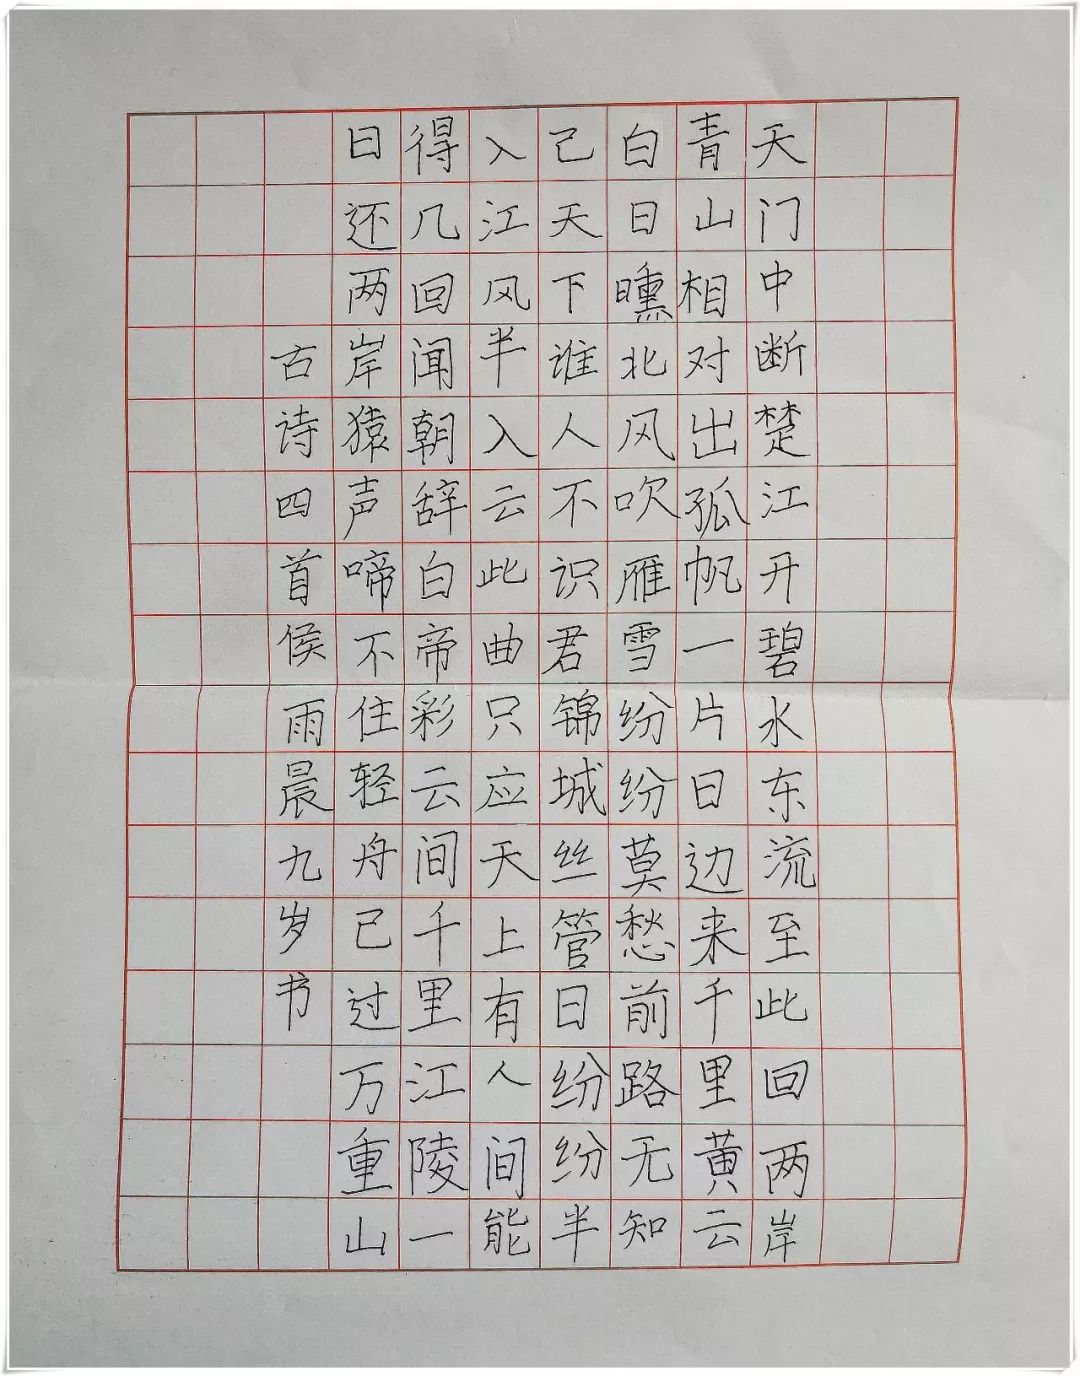 天门中断楚江开碧水东流至此回两岸
青山相对出孤帆一片日边来千里黄云
白日曛北风吹雁雪纷纷莫愁前路无知
己天下谁人不识君锦城丝管日纷纷半
入江风半入云此曲只应天上有人间能
得几回闻朝辞白帝彩云间千里江陵一
日还两岸猿声啼不住轻舟已过万重山
古诗四首侯雨晨九岁书